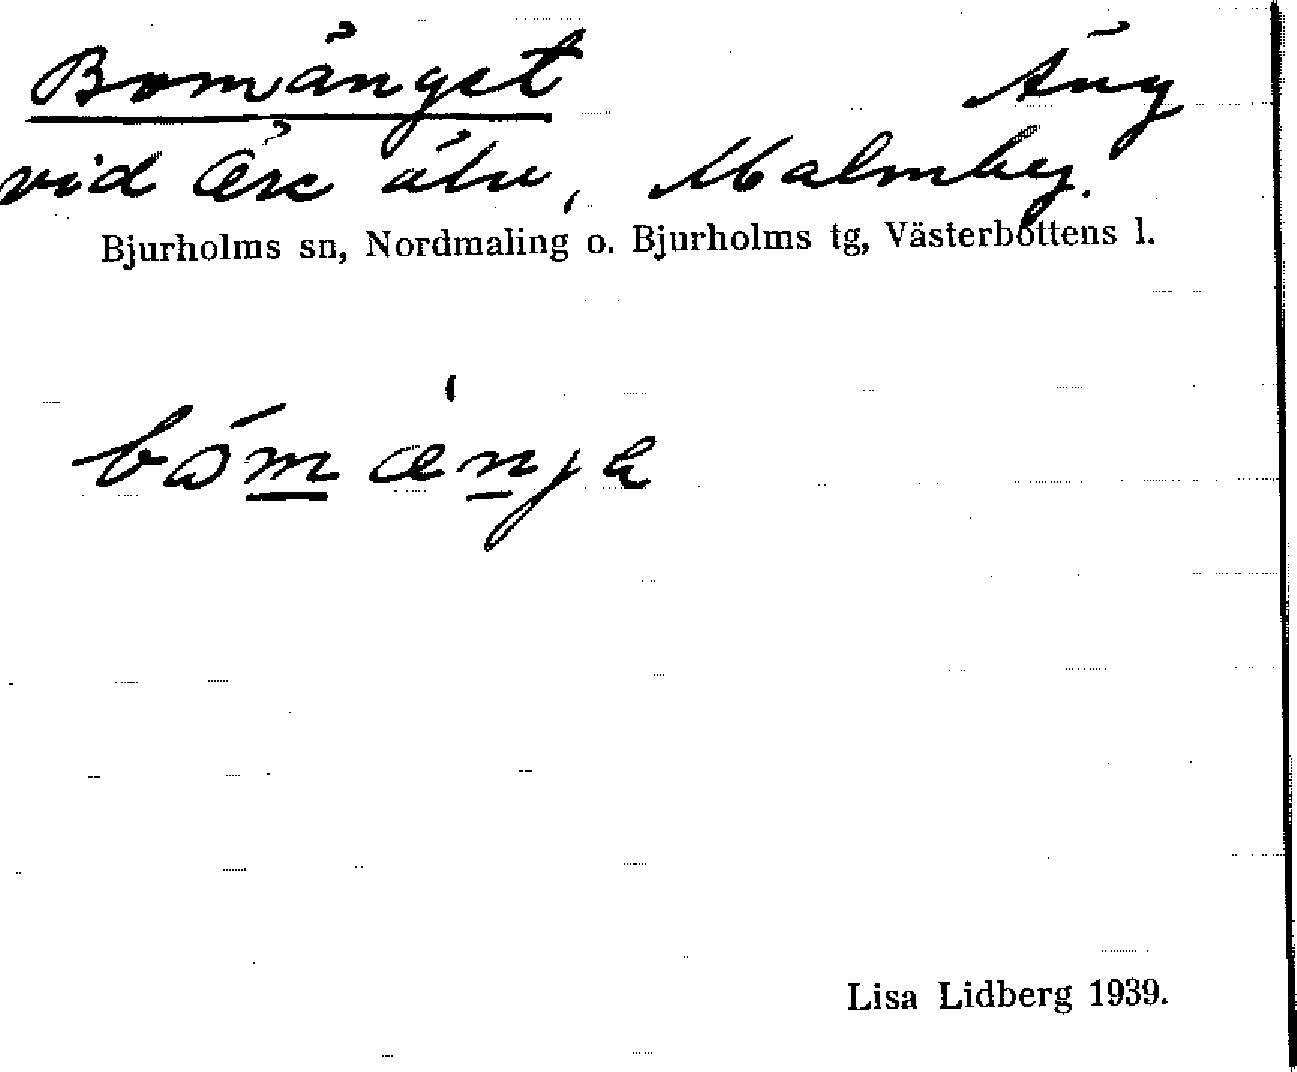 Bomänget Äng
vid Öre älv, Malmby.
Bjurholms sn, Nordmaling o. Bjurholms tg, Västerbottens l.
Lisa Lidberg 1939.